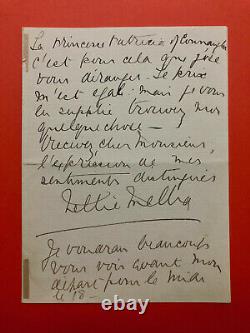 La Princesse Patricia of Connaught
c'est pour cela que j'ose
vous déranger. Le prix
m'est égal mais je vous
en supplie trouvez moi
quelque chose —
recevez cher Monsieur,
l'expression de mes
sentiments distingués
Nellie Melba
Je voudrais beaucoup
vous voir avant mon
départ pour le midi
le 10 —